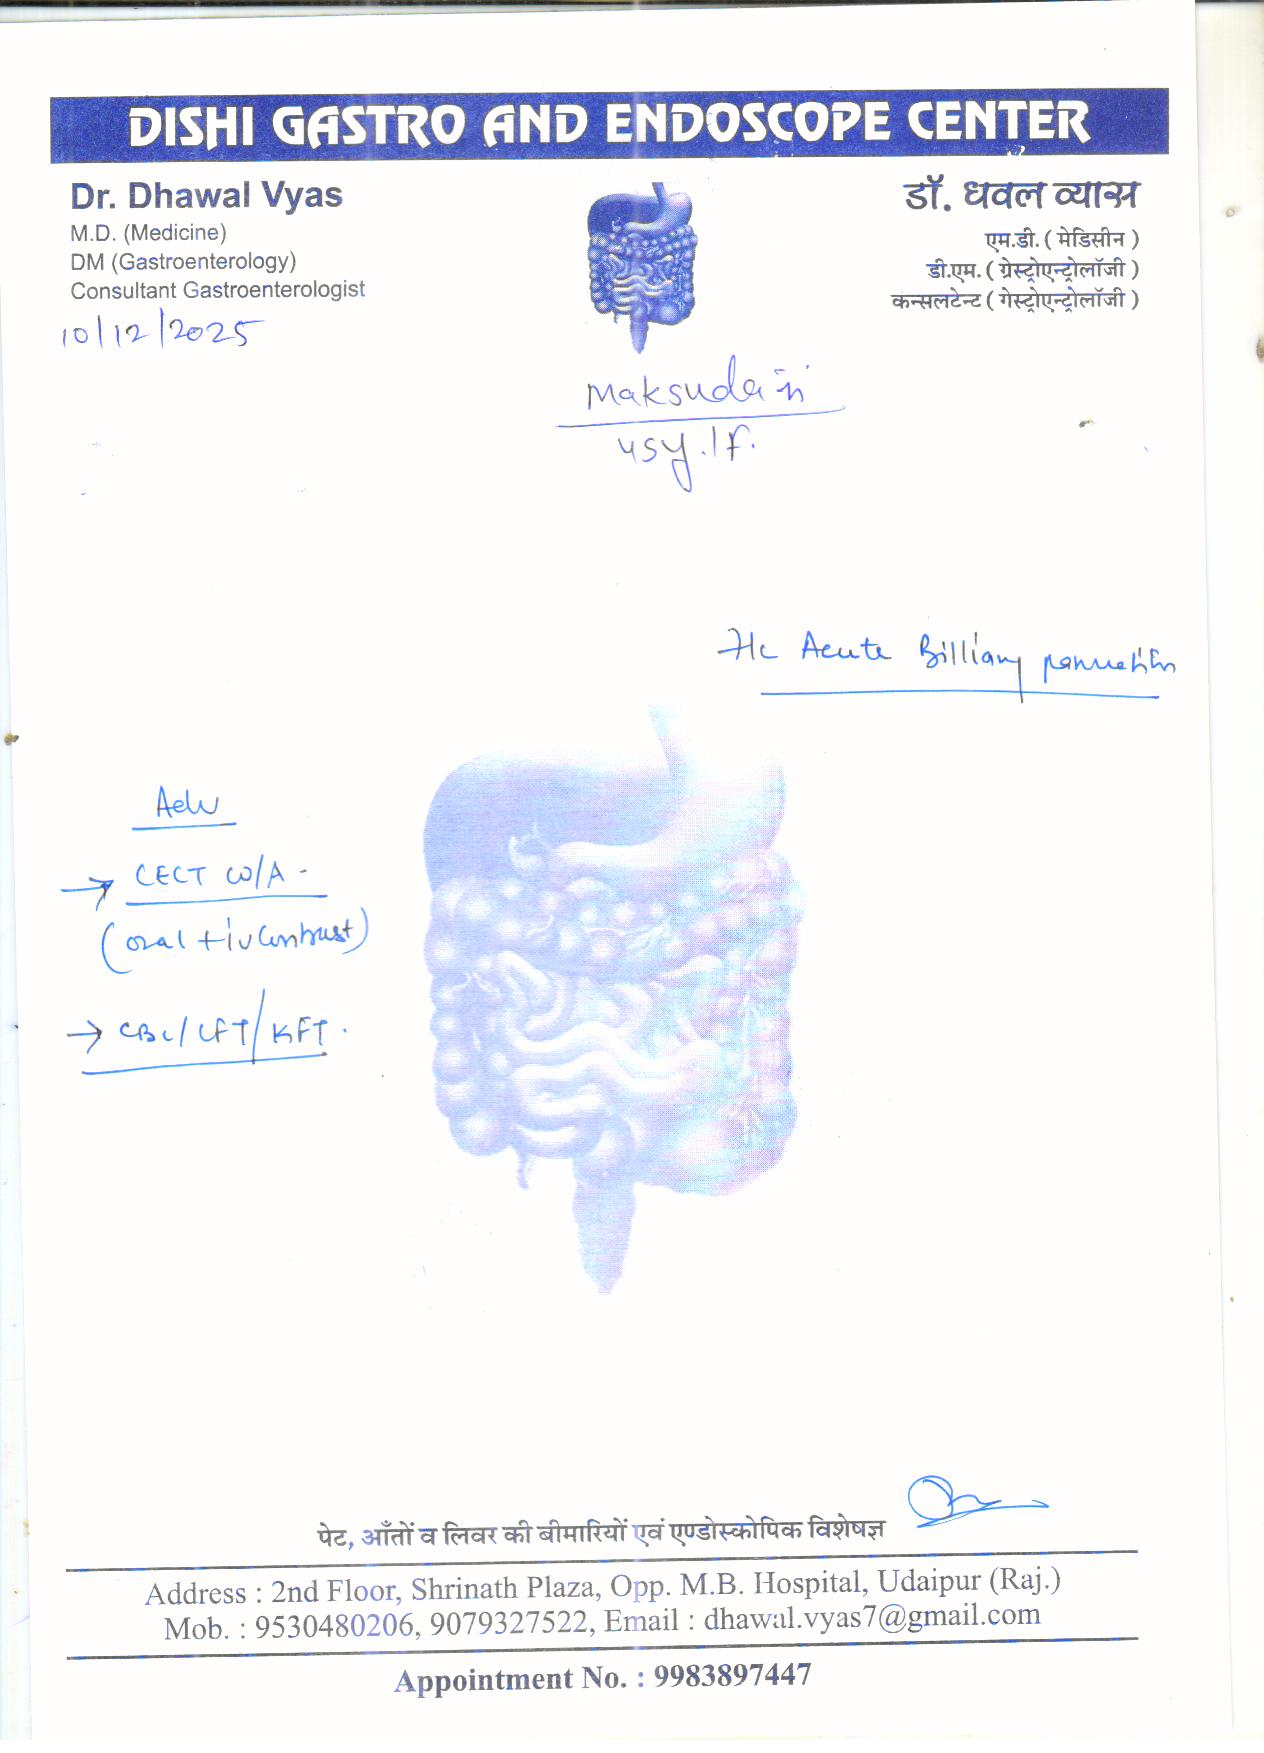 DISHI GASTRO AND ENDOSCOPE CENTER
Dr. Dhawal Vyas
M.D. (Medicine)
DM (Gastroenterology)
Consultant Gastroenterologist
डॉ. धवल व्यास
एम.डी. ( मेडिसीन )
डी.एम. ( ग्रेस्ट्रोएन्ट्रोलॉजी )
कन्सलटेन्ट ( गेस्ट्रोएन्ट्रोलॉजी )
10/12/2025
45y.1f.
Acute Billiary
Adv
→ CECT W/A -
(oral + iv contrast)
→ CBC/LFT/KFT.
पेट, आँतों व लिवर की बीमारियों एवं एण्डोस्कोपिक विशेषज्ञ
Address : 2nd Floor, Shrinath Plaza, Opp. M.B. Hospital, Udaipur (Raj.)
Mob. : 9530480206, 9079327522, Email : dhawal.vyas7@gmail.com
Appointment No. : 9983897447